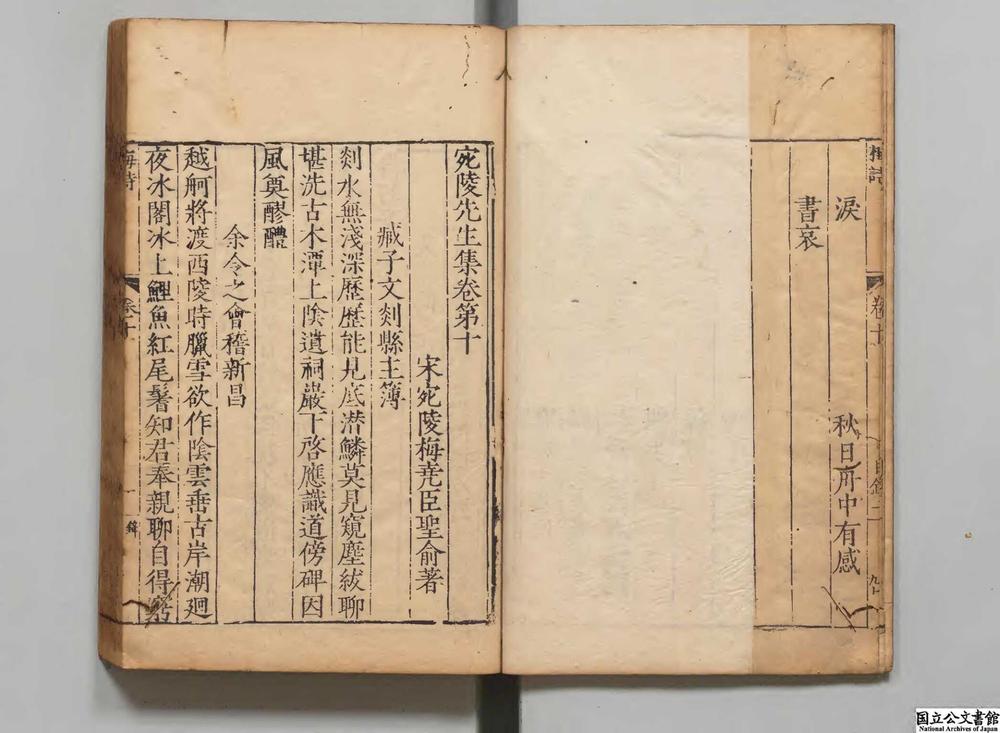 淚
秋日府中有感
書哀
梅詩
卷十
目錄 二
宛陵先生集卷第十
宋宛陵梅堯臣聖俞著
臧子文剡縣主簿
剡水無淺深歷歷能見底潛鱗莫見窺塵紱聊
堪洗古木潭上陰遺祠巖下啓應識道傍碑因
風奠醪醴
余令之會稽新昌
越舸將渡西陵時臘雪欲作陰雲垂古岸潮廻
夜冰閣冰上鯉魚紅尾鬐知君奉親聊自得窮
梅詩
国立公文書館
National Archives of Japan